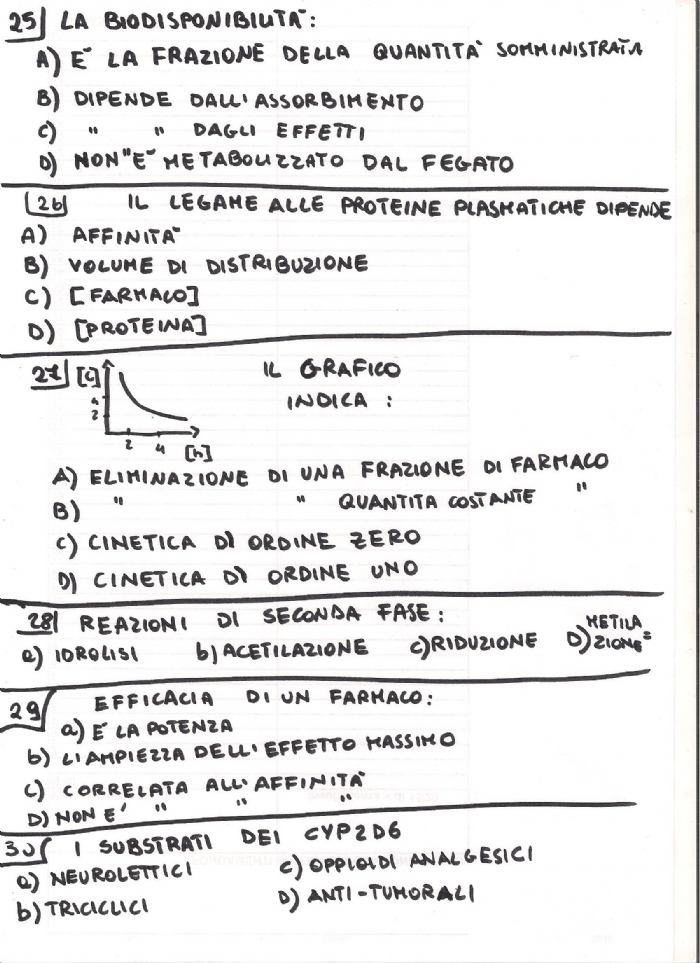 25 LA BIODISPONIBILITA':
A) E' LA FRAZIONE DELLA QUANTITA' SOMMINISTRATA
B) DIPENDE DALL'ASSORBIMENTO
C) " " DAGLI EFFETTI
D) NON "E" METABOLIZZATO DAL FEGATO
26 IL LEGAME ALLE PROTEINE PLASMATICHE DIPENDE
A) AFFINITA'
B) VOLUME DI DISTRIBUZIONE
C) [FARMACO]
D) [PROTEINA]
27 [C] IL GRAFICO
4
2
INDICA :
2 4 [h]
A) ELIMINAZIONE DI UNA FRAZIONE DI FARMACO
B) " " QUANTITA COSTANTE "
C) CINETICA DI ORDINE ZERO
D) CINETICA DI ORDINE UNO
28 REAZIONI DI SECONDA FASE:
a) IDROLISI b) ACETILAZIONE c) RIDUZIONE D) METILAZIONE=
29 EFFICACIA DI UN FARMACO:
a) E' LA POTENZA
b) L'AMPIEZZA DELL'EFFETTO MASSIMO
C) CORRELATA ALL'AFFINITA'
D) NON E' " " "
30 I SUBSTRATI DEI CYP2D6
a) NEUROLETTICI c) OPPIOIDI ANALGESICI
b) TRICICLICI D) ANTI-TUMORALI